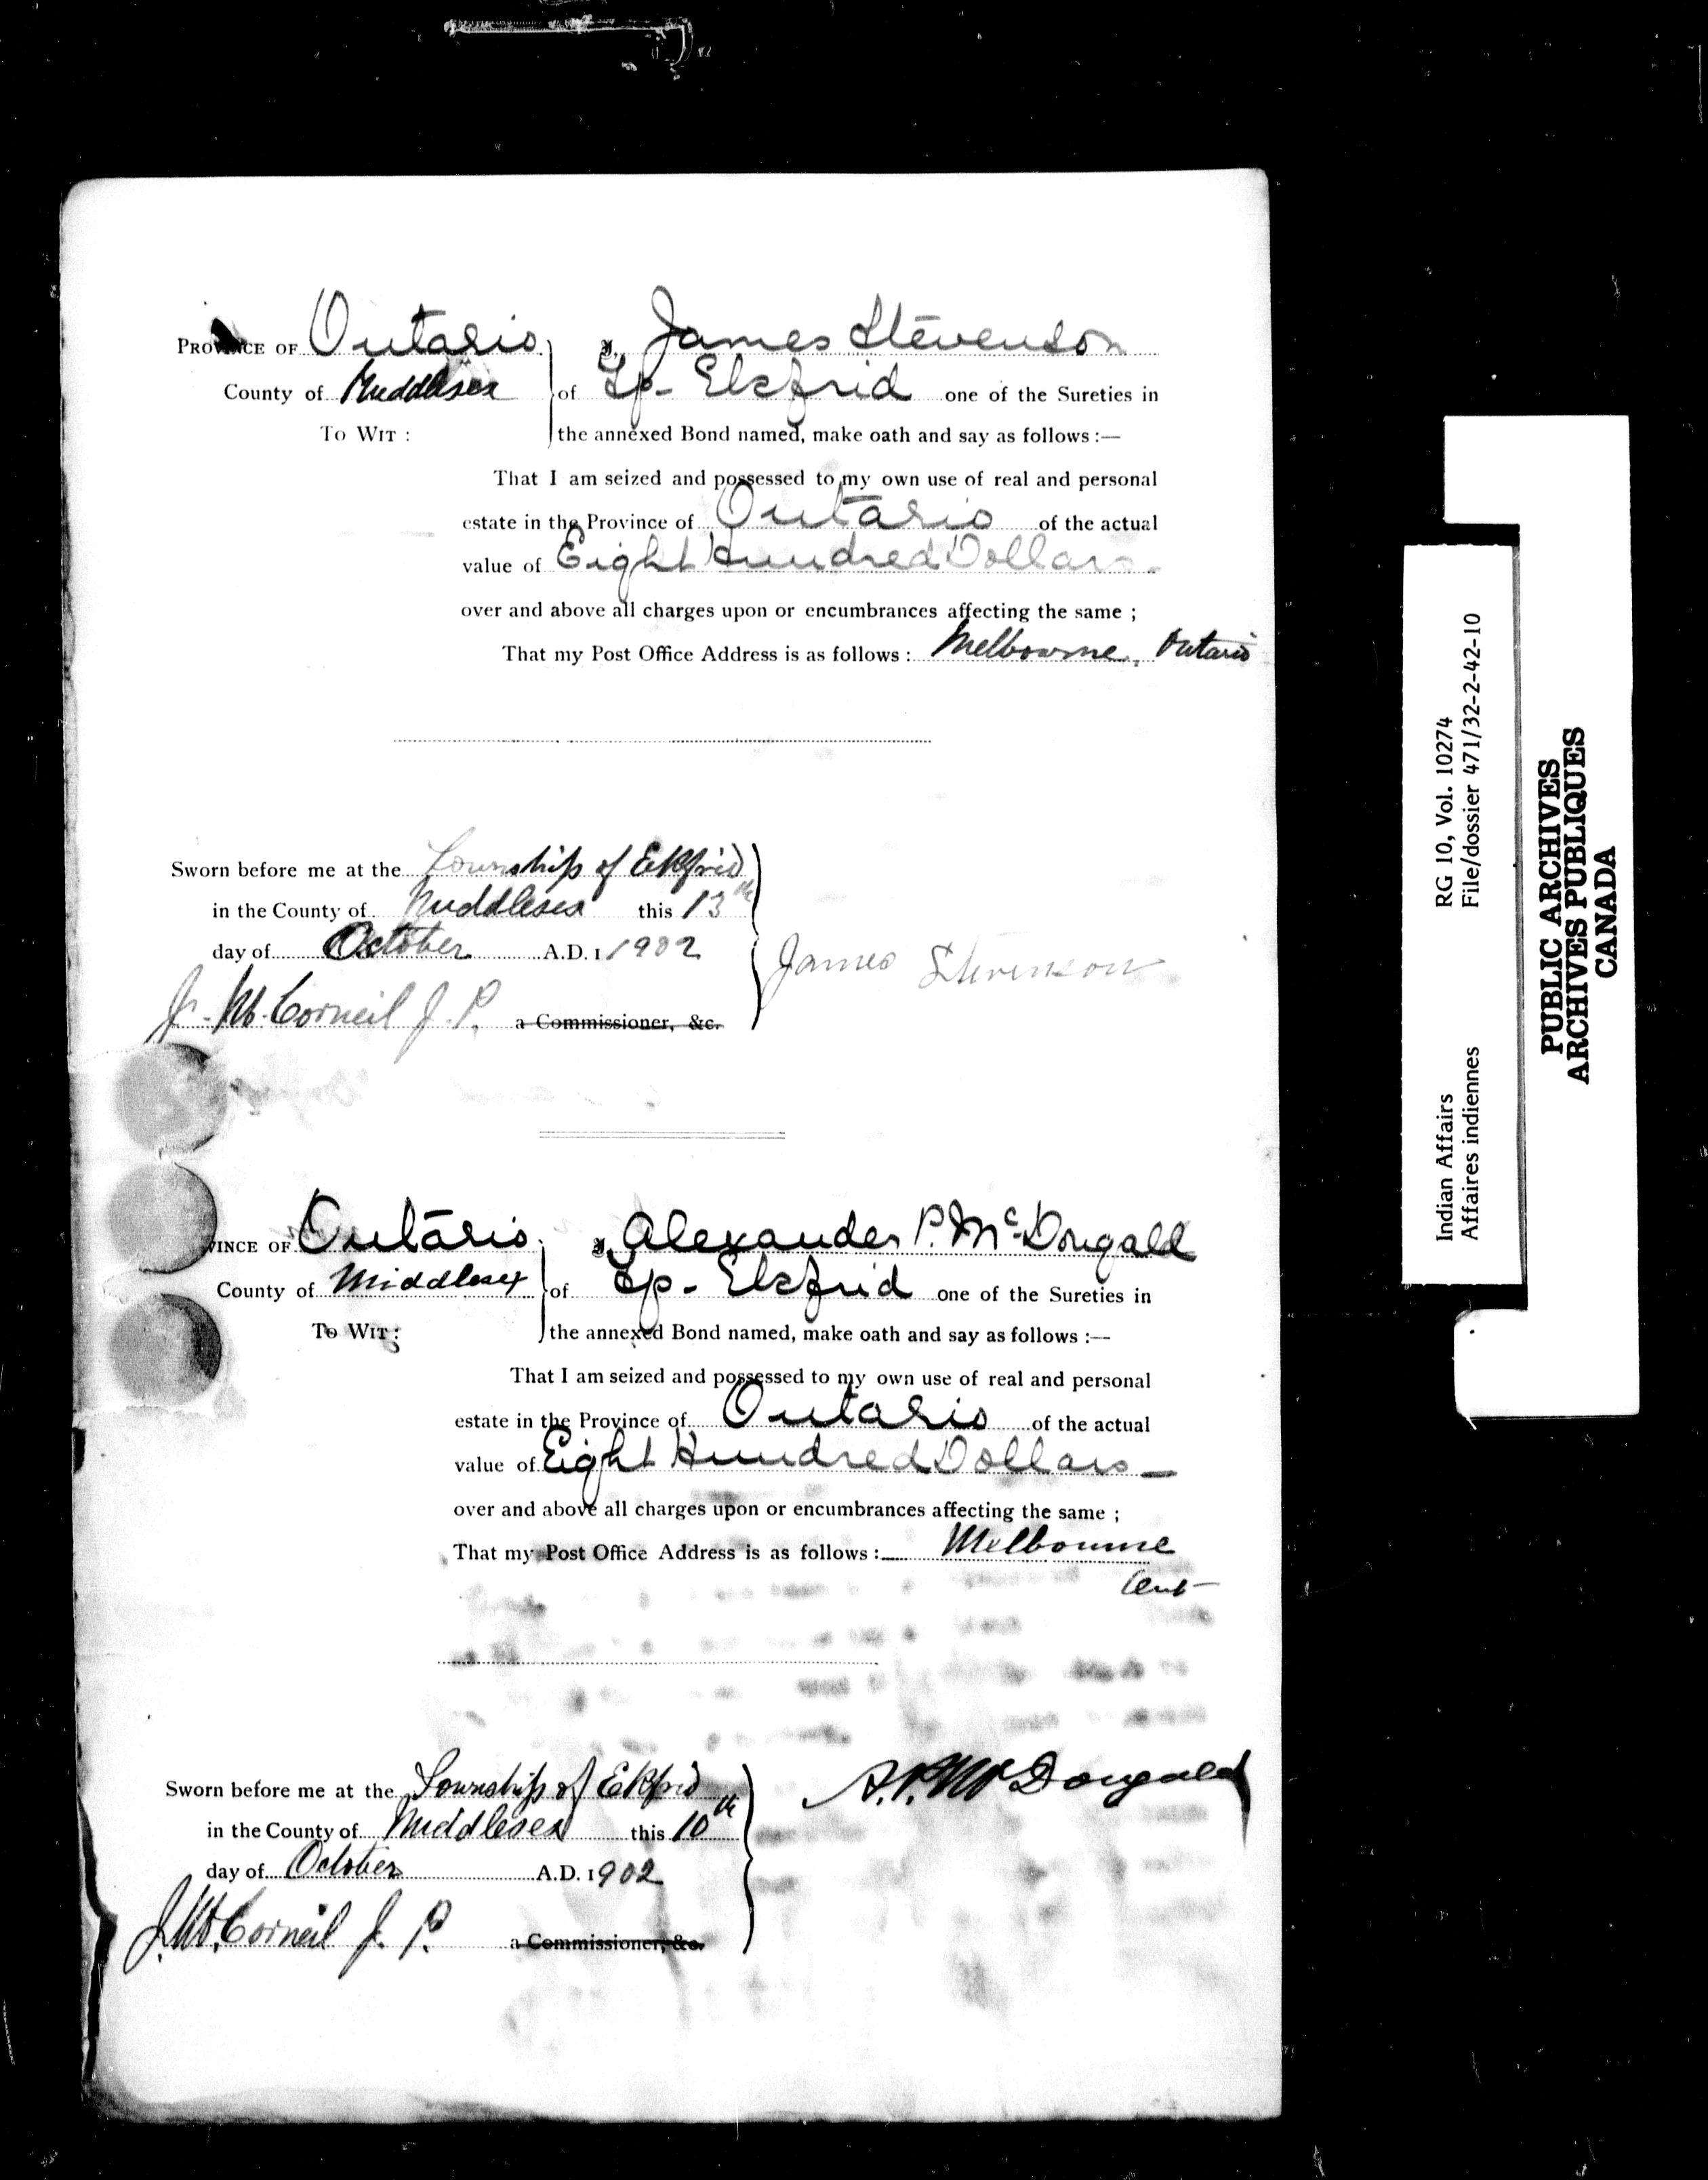 PROVINCE OF Ontario I, James Stevenson
County of Middlesex of Tp- Ekfrid one of the Sureties in
To Wit : the annexed Bond named, make oath and say as follows :—
That I am seized and possessed to my own use of real and personal
estate in the Province of Ontario of the actual
value of Eight Hundred Dollars -
over and above all charges upon or encumbrances affecting the same ;
That my Post Office Address is as follows : Melbourne, Ontario
Sworn before me at the Township of Ekfrid
in the County of Middlesex this 13th
day of October A.D. 1 1902
James Stevenson
J. McCorneil J. P. a Commissioner, &c.
VINCE OF Ontario. I, Alexander P. McDougald
County of Middlesex of Tp- Ekfrid one of the Sureties in
To Wit : the annexed Bond named, make oath and say as follows :—
That I am seized and possessed to my own use of real and personal
estate in the Province of Ontario of the actual
value of Eight Hundred Dollars —
over and above all charges upon or encumbrances affecting the same ;
That my Post Office Address is as follows : Melbourne
Ont
Sworn before me at the Township of Ekfrid
A. P. McDougald
in the County of Middlesex this 10th
day of October A.D. 1902
J. McCorneil J. P. a Commissioner, &c.
Indian Affairs RG 10, Vol. 10274
Affaires indiennes File/dossier 471/32-2-42-10
PUBLIC ARCHIVES
ARCHIVES PUBLIQUES
CANADA